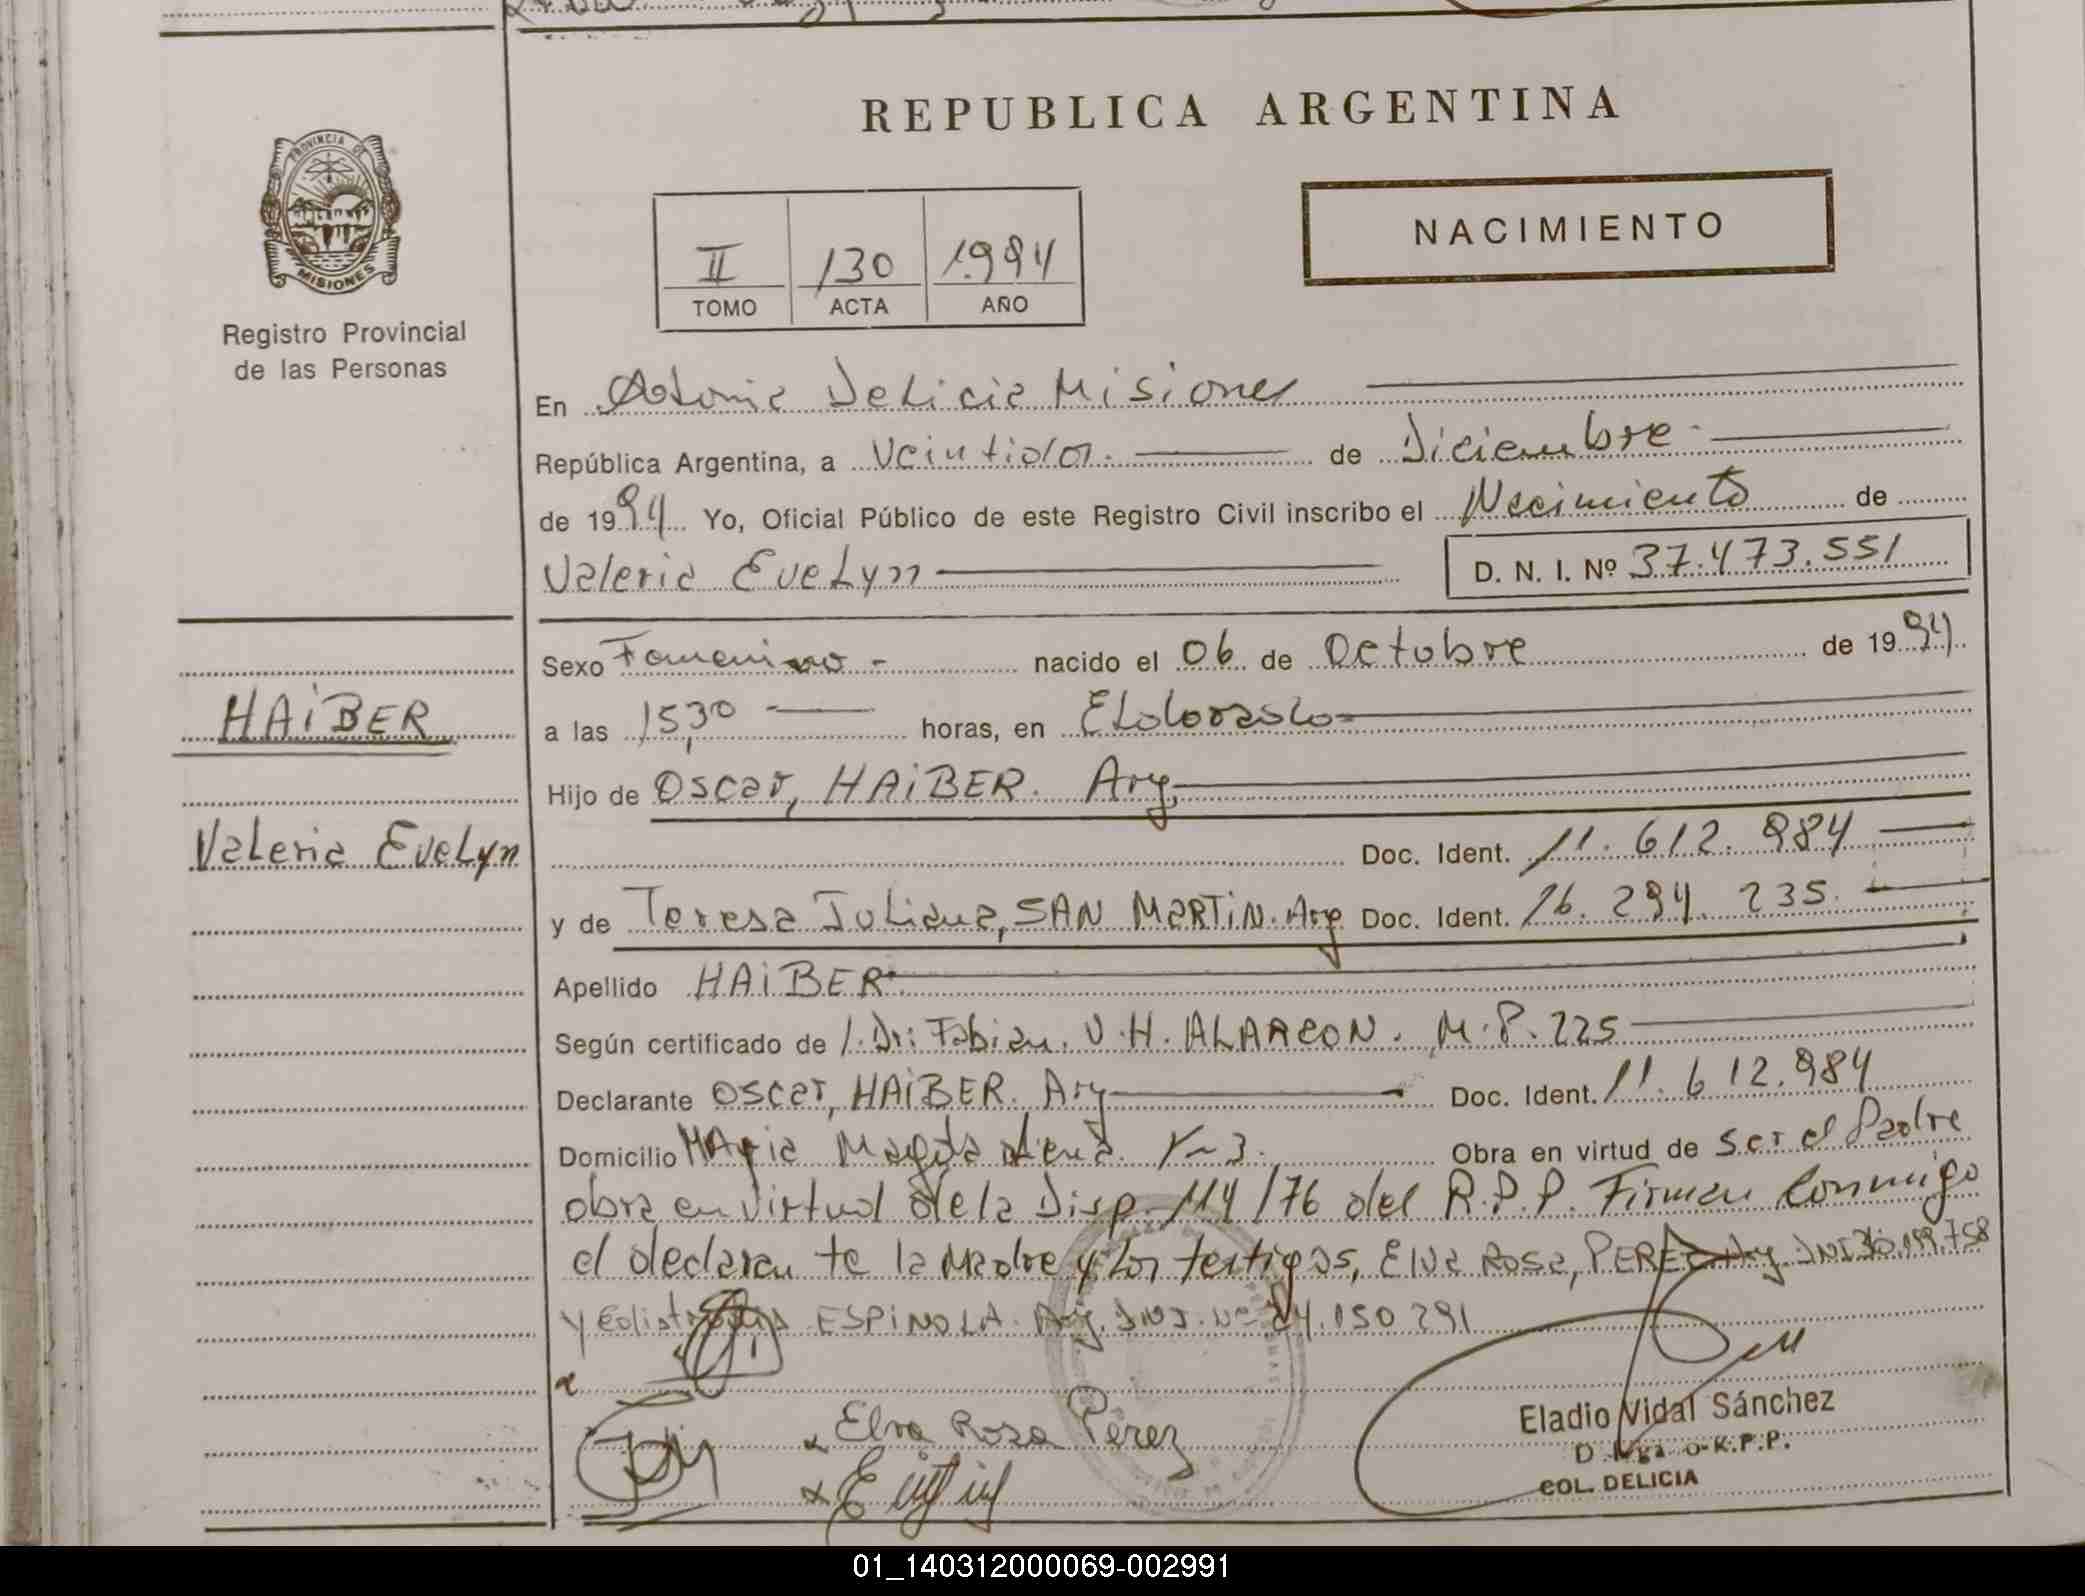 REPUBLICA ARGENTINA
PROVINCIA DE
MISIONES
Registro Provincial
de las Personas
NACIMIENTO
II 130 1.994
TOMO ACTA AÑO
En Colonia Delicia Misiones
República Argentina, a Veintidos. de Diciembre
de 1994 Yo, Oficial Público de este Registro Civil inscribo el Nacimiento de
Valeria Evelyn D. N. I. Nº 37.473.551
Sexo Femenino - nacido el 06 de Octubre de 1994
HAiBER
a las 15,30 horas, en Eldorado
Hijo de Oscar, HAiBER. Arg.
Valeria Evelyn
Doc. Ident. 11.612.984
y de Teresa Juliana, SAN MARTiN. Arg Doc. Ident. 16.294.235.
Apellido HAiBER
Según certificado de /. Dr: Fabian. V.H. ALARCON. M.P. 225
Declarante Oscar, HAiBER. Arg Doc. Ident. 11.612.984
Domicilio Maria Magdalena. Obra en virtud de ser el Padre
obra en virtud de la Disp. 114/76 del R.P.P. Firman Conmigo
el declarante la Madre y los testigos, Elva Rosa, PEREZ Arg. DNI
y ESPiNOLA. Arg. DNI. Nº 24.150.291
Elva Rosa Perez
Eladio Vidal Sánchez
R.P.P.
COL. DELICIA
01_140312000069-002991